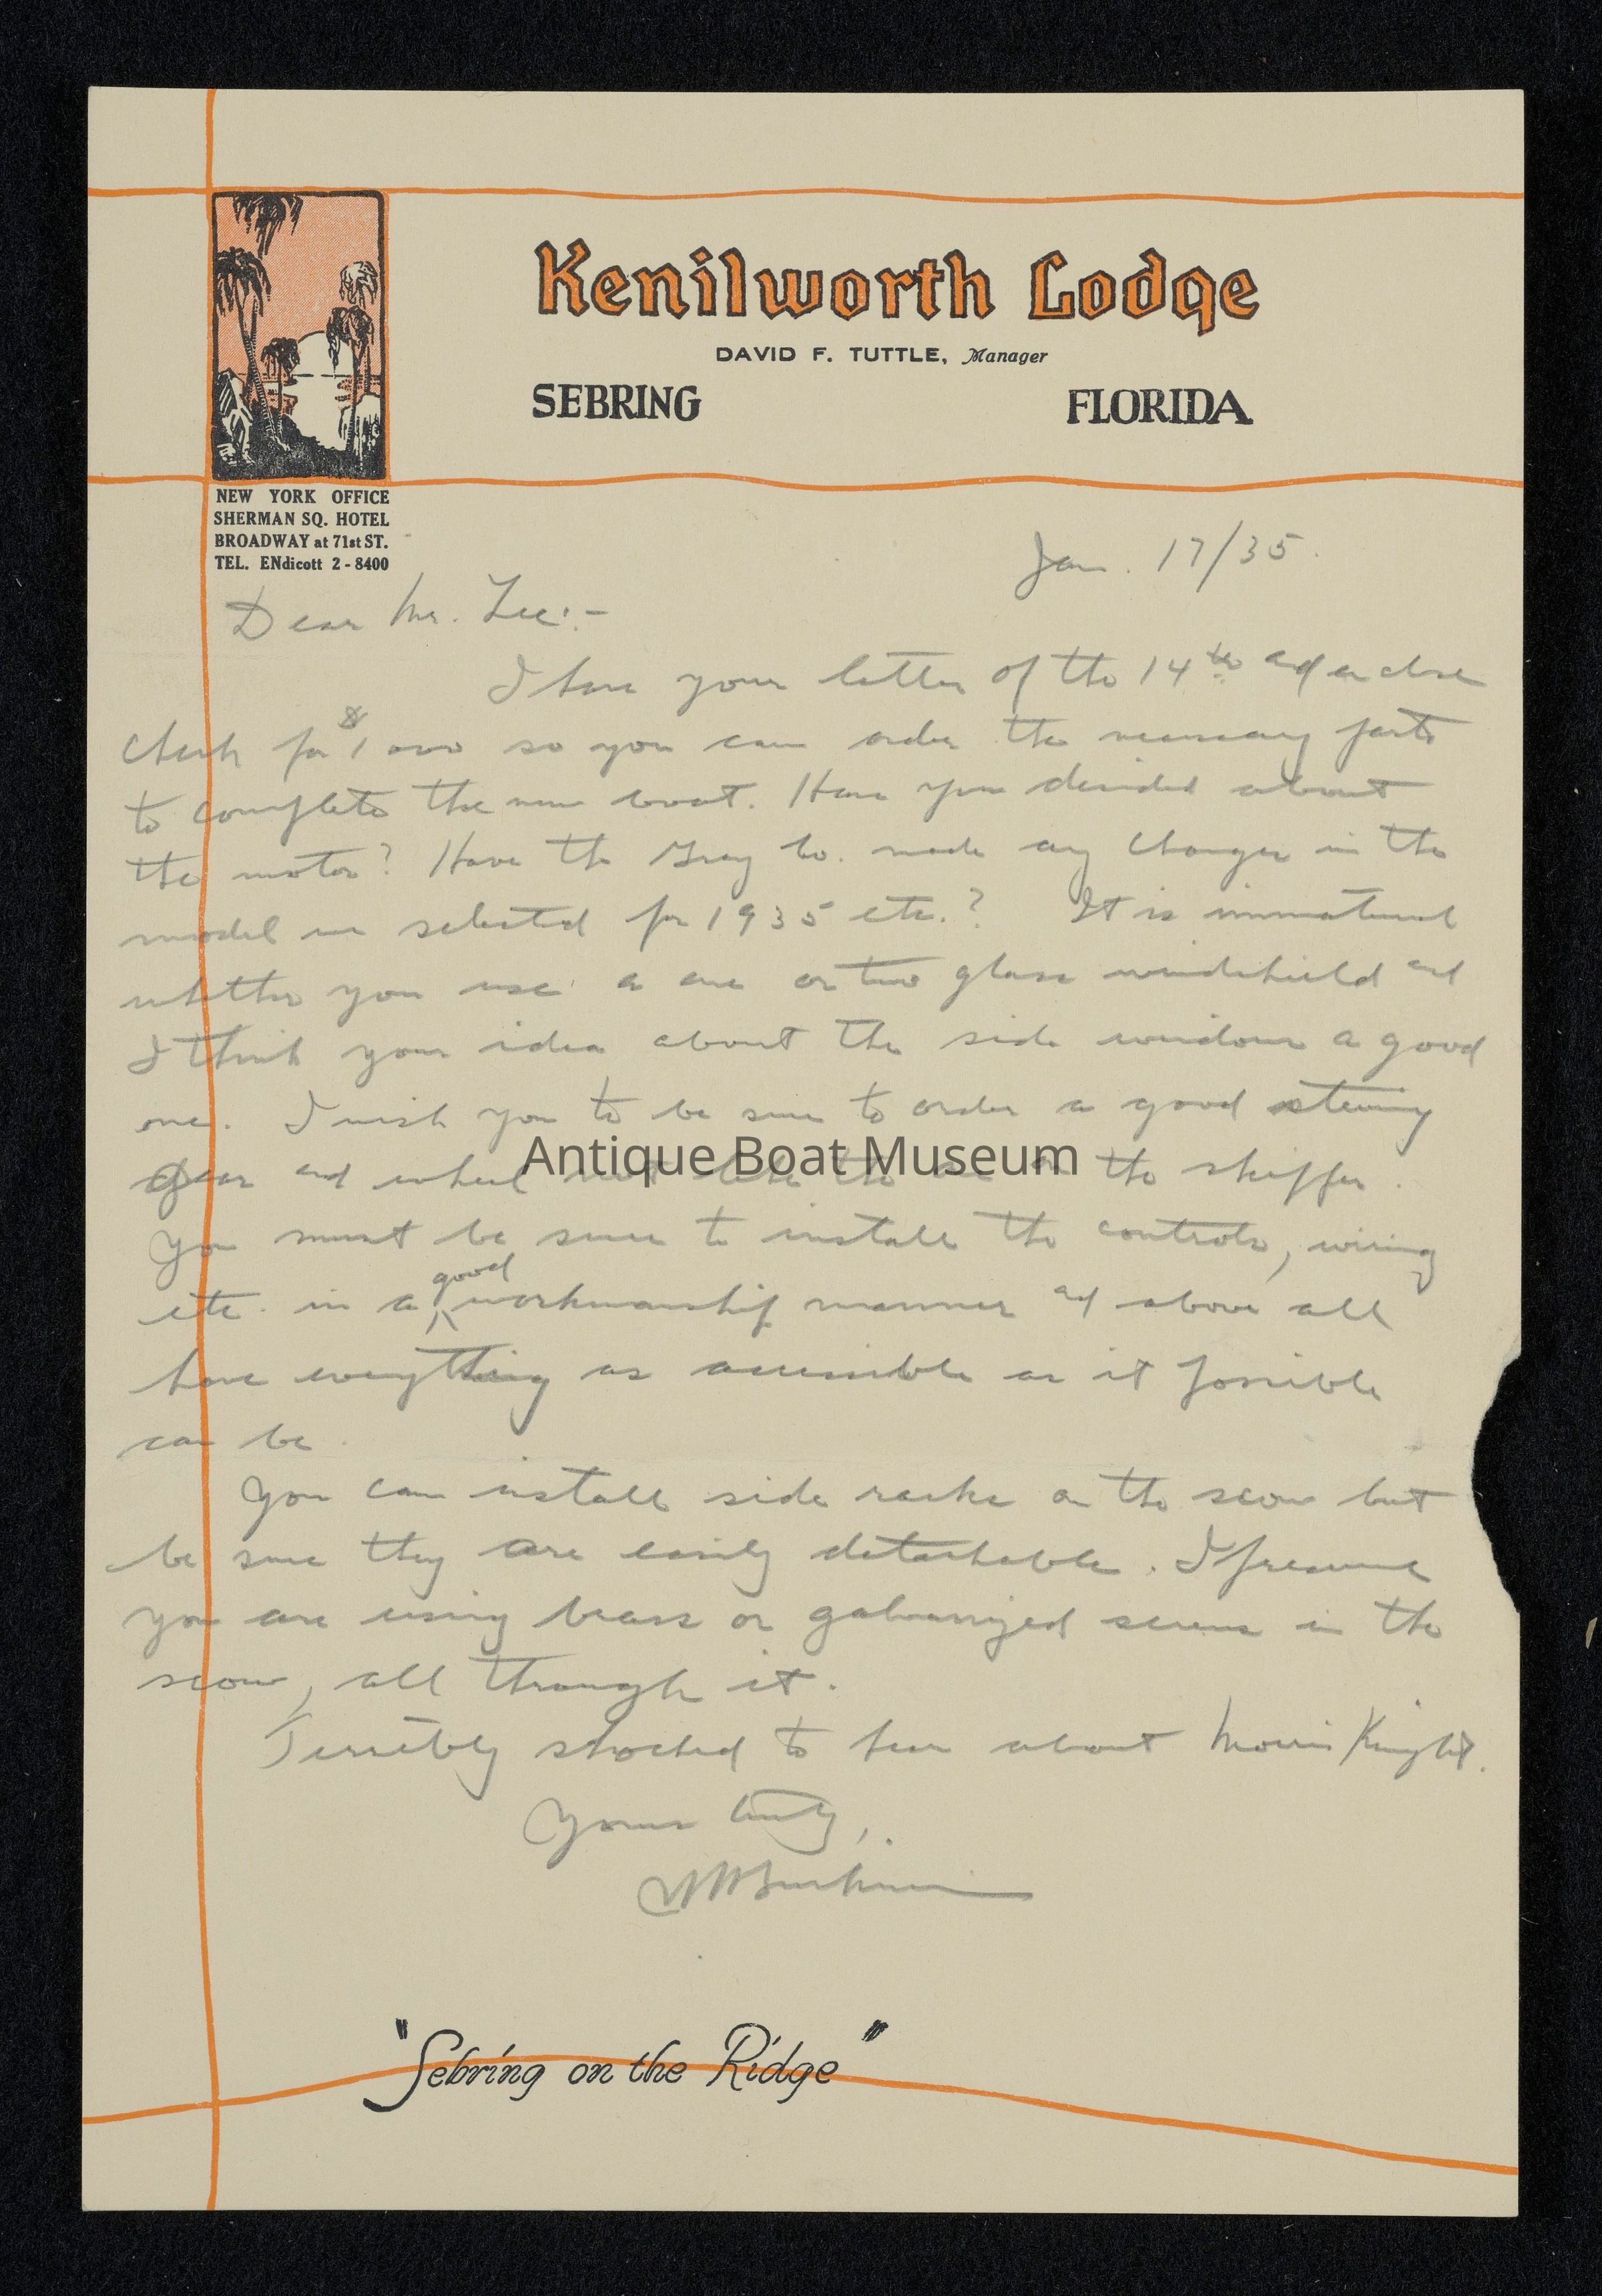 Kenilworth Lodge
DAVID F. TUTTLE, Manager
SEBRING FLORIDA
NEW YORK OFFICE
SHERMAN SQ. HOTEL
BROADWAY at 71st ST.
TEL. ENdicott 2-8400
Jan. 17/35.
Dear Mr. Lee:-
I have your letter of the 14th and enclose
check for $1000 so you can order the necessary parts
to complete the new boat. Have you decided about
the motor? Have the Gray Co. made any changes in the
model we selected for 1935 etc.? It is immaterial
whether you use a one or two glass windshield and
I think your idea about the side windows a good
one. I wish you to be sure to order a good steering
gear and wheel not like the one on the skiffer.
You must be sure to install the controls, wiring
etc. in a good workmanship manner and above all
have everything as accessible as it possible
can be.
You can install side racks on the scow but
be sure they are easily detachable. I presume
you are using brass or galvanized screws in the
scow, all through it.
Terribly shocked to hear about Morris Knight.
Yours truly,
"Sebring on the Ridge"
Antique Boat Museum